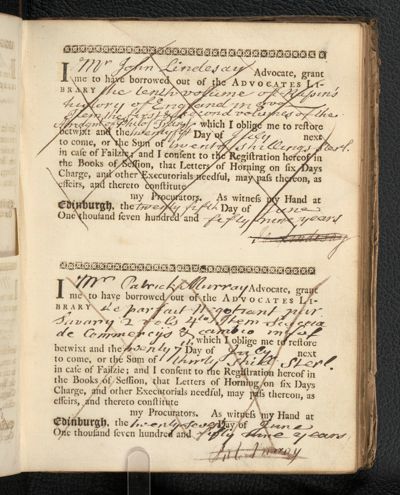 I Mr John Lindesay Advocate, grant
me to have borrowed out of the ADVOCATES LI-
BRARY the tenth volume of Rapin's
history of England in 8vo
Item the first & second volumes of the
which I oblige me to restore
betwixt and the twenty fifth Day of July next
to come, or the Sum of twenty shillings sterl.
in case of Failzie; and I consent to the Registration hereof in
the Books of Session, that Letters of Horning on six Days
Charge, and other Executorials needful, may pass thereon, as
effeirs, and thereto constitute
my Procurators. As witness my Hand at
Edinburgh, the twenty fifth Day of June
One thousand seven hundred and fifty nine years
Jo: Lindesay
I Mr Patrick Murray Advocate, grant
me to have borrowed out of the ADVOCATES LI-
BRARY Le parfait Negotiant par
Savary 2 vols 4to Item Scaccia
de Commerciis & cambio in fol.
which I oblige me to restore
betwixt and the twenty 7th Day of July next
to come, or the Sum of thirty shill. Sterl.
in case of Failzie; and I consent to the Registration hereof in
the Books of Session, that Letters of Horning on six Days
Charge, and other Executorials needful, may pass thereon, as
effeirs, and thereto constitute
my Procurators. As witness my Hand at
Edinburgh, the twenty seven Day of June
One thousand seven hundred and fifty nine years
Pat. Murray